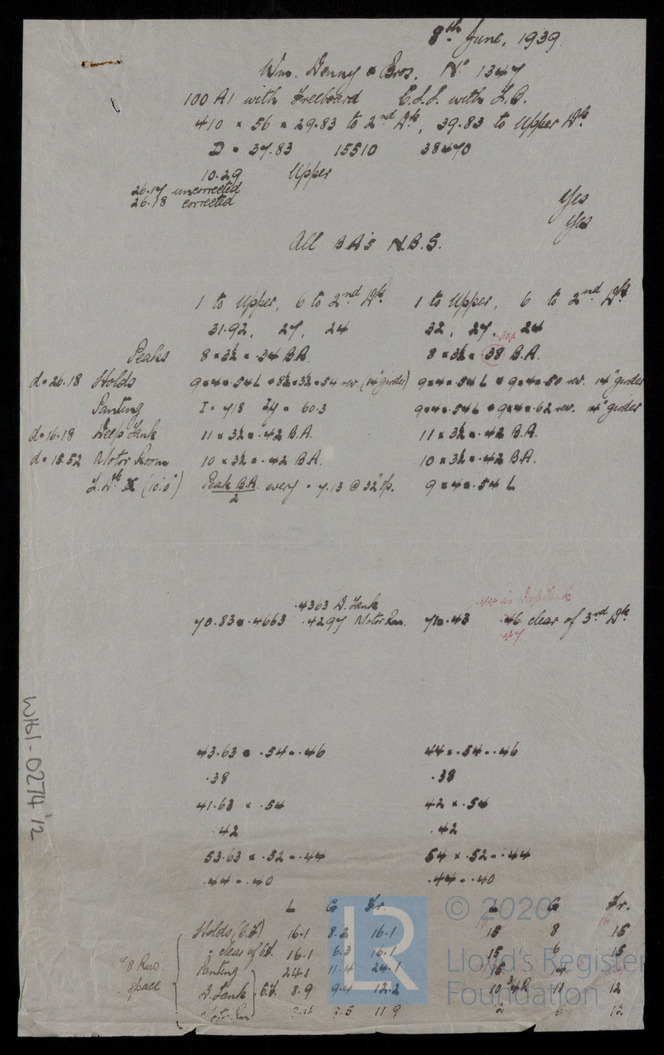 8th June, 1939.
Wm. Denny & Bros. No 1347
100 A1 with Freeboard C.S.S. with F.B.
410 x 56 x 29.83 to 2nd Dk, 39.83 to Upper Dk.
D = 37.83 15510 38470
10.29 Upper
26.17 uncorrected Yes
26.18 corrected Yes
All BA's N.B.S.
1 to Upper, 6 to 2nd Dk 1 to Upper, 6 to 2nd Dk
31.92, 27, 24 32, 27, 24
Peaks 8 x 3½ x .34 B.A. 8 x 3½ x .38 B.A.
d = 26.18 Holds 9 x 4 x .54 L + 8½ x 3½ x .54 rev. (14" girder) 9 x 4 x .54 L + 9 x 4 x .50 rev. 14" girder
Panting I = 418 60.3 9 x 4 x .54 L + 9 x 4 x .62 rev. 14" girder
d = 16.18 Deep Tank 11 x 3½ x .42 B.A. 11 x 3½ x .42 B.A.
d = 15.52 Motor Room 10 x 3½ x .42 B.A. 10 x 3½ x .42 B.A.
(10'0") Peak B.A./2 every = 7.13 @ 32" sp. 9 x 4 x .54 L
.4363 D. Tank .44 in Deep Tank
70.83 x .4663 .4297 Motor Rm. 71 x .43 .46 clear of 3rd Dk.
.47
43.63 x .54 - .46 44 x .54 - .46
.38 .38
41.63 x .54 42 x .54
.42 .42
53.63 x .52 - .44 54 x .52 - .44
.44 - .40 .44 - .40
L G Fr. L G Fr.
Holds (C.F.) 16.1 8.2 16.1 15 8 15
" clear of C.F. 16.1 6.3 16.1 15 6 15
Panting 24.1 11.4 24.1 15
D. Tank C.F. 8.9 9.4 12.2 10 11 12
Motor Rm 9.5 11.9 12
7/8 Rivs.
space
W161-0274 1/2
LR
© 2020
Lloyd's Register
Foundation